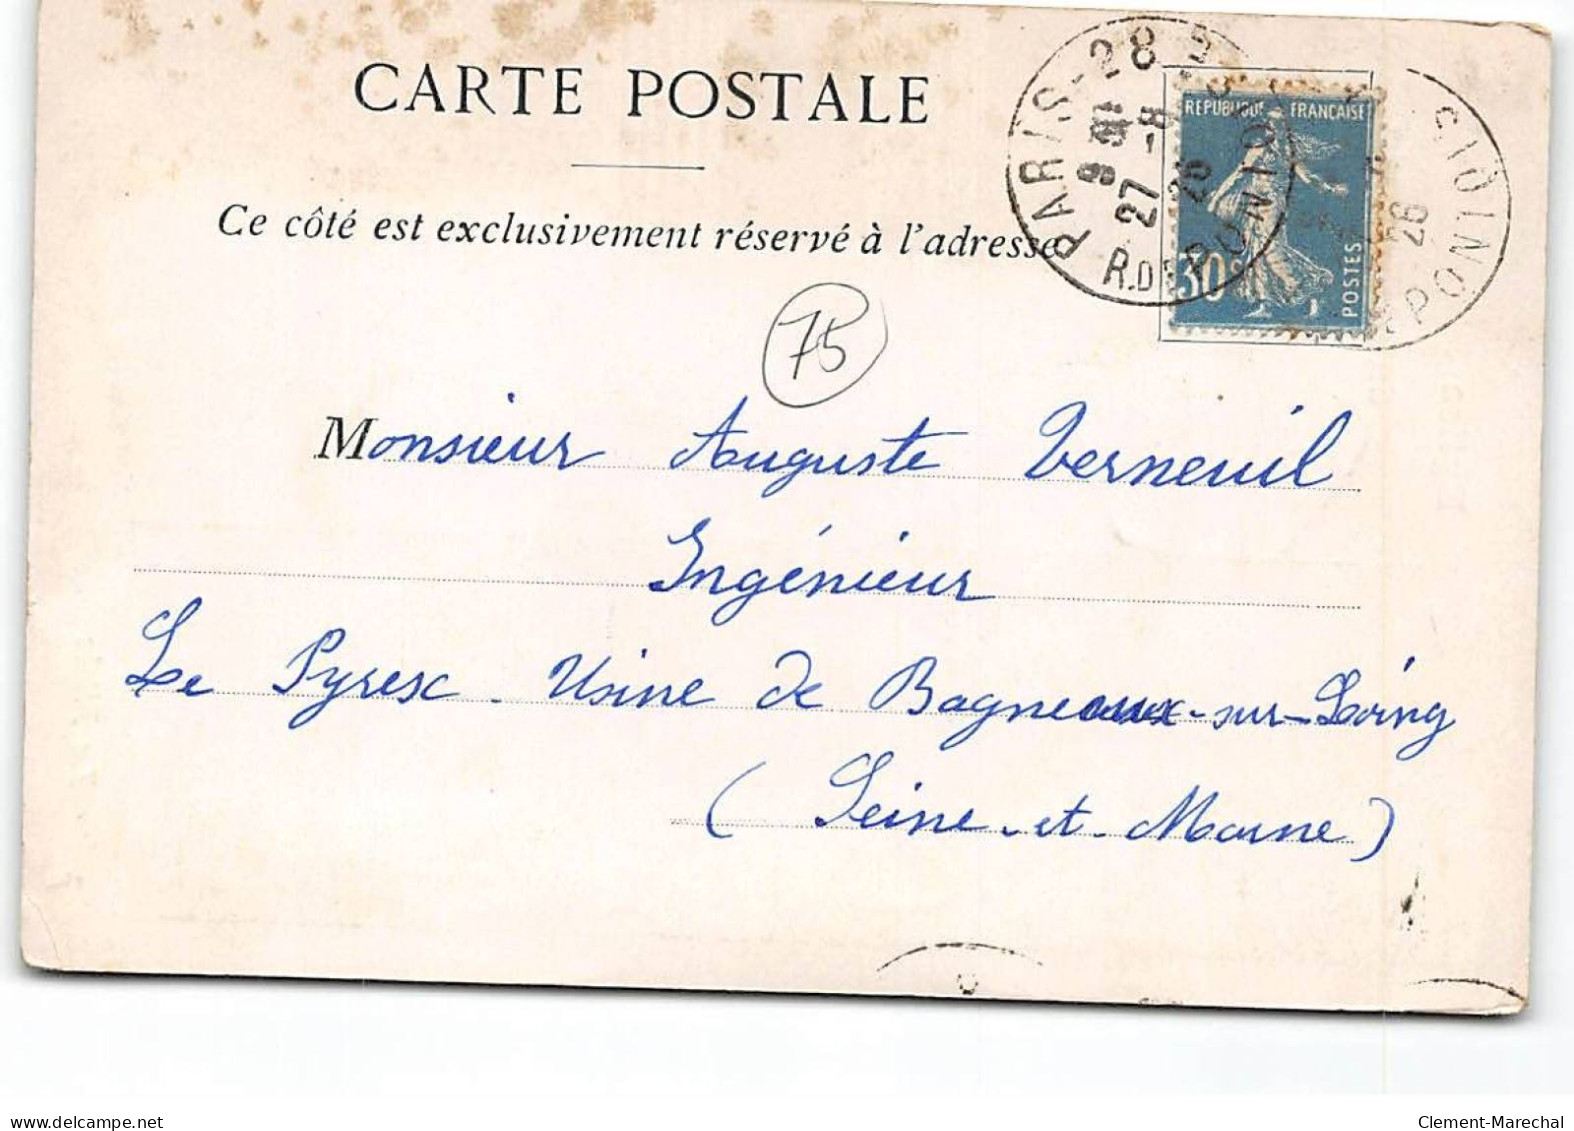 CARTE POSTALE
Ce côté est exclusivement réservé à l'adresse
PARIS-28
27 -8
26
REPUBLIQUE FRANÇAISE
30c
POSTES
26
75
Monsieur Auguste Verneuil
Ingénieur
Le Pyrex - Usine de Bagneaux-sur-Loing
(Seine-et-Marne)
www.delcampe.net
Clement-Marechal